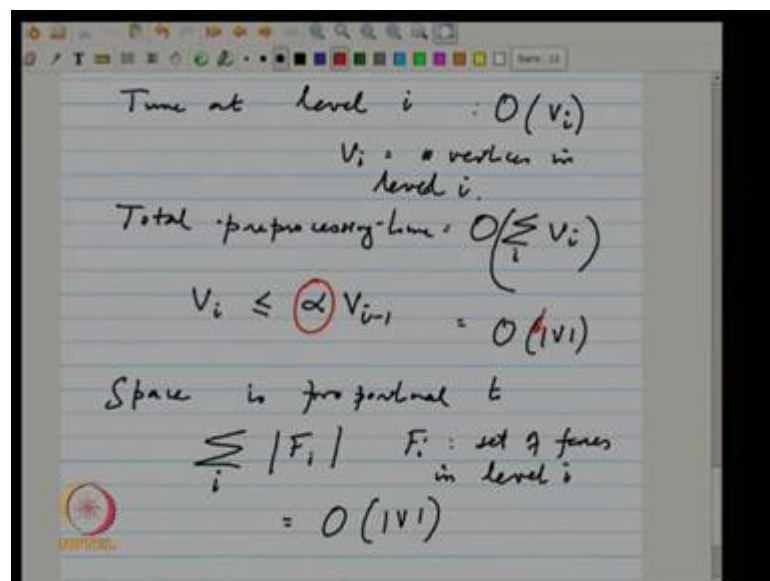 Time at level i : O(Vi)
Vi = # vertices in
level i.
Total preprocessing time = O(∑i Vi)
Vi ≤ α Vi-1 = O(|V|)
Space is proportional t
∑i |Fi| Fi : set of faces
in level i
= O(|V|)
NPTEL